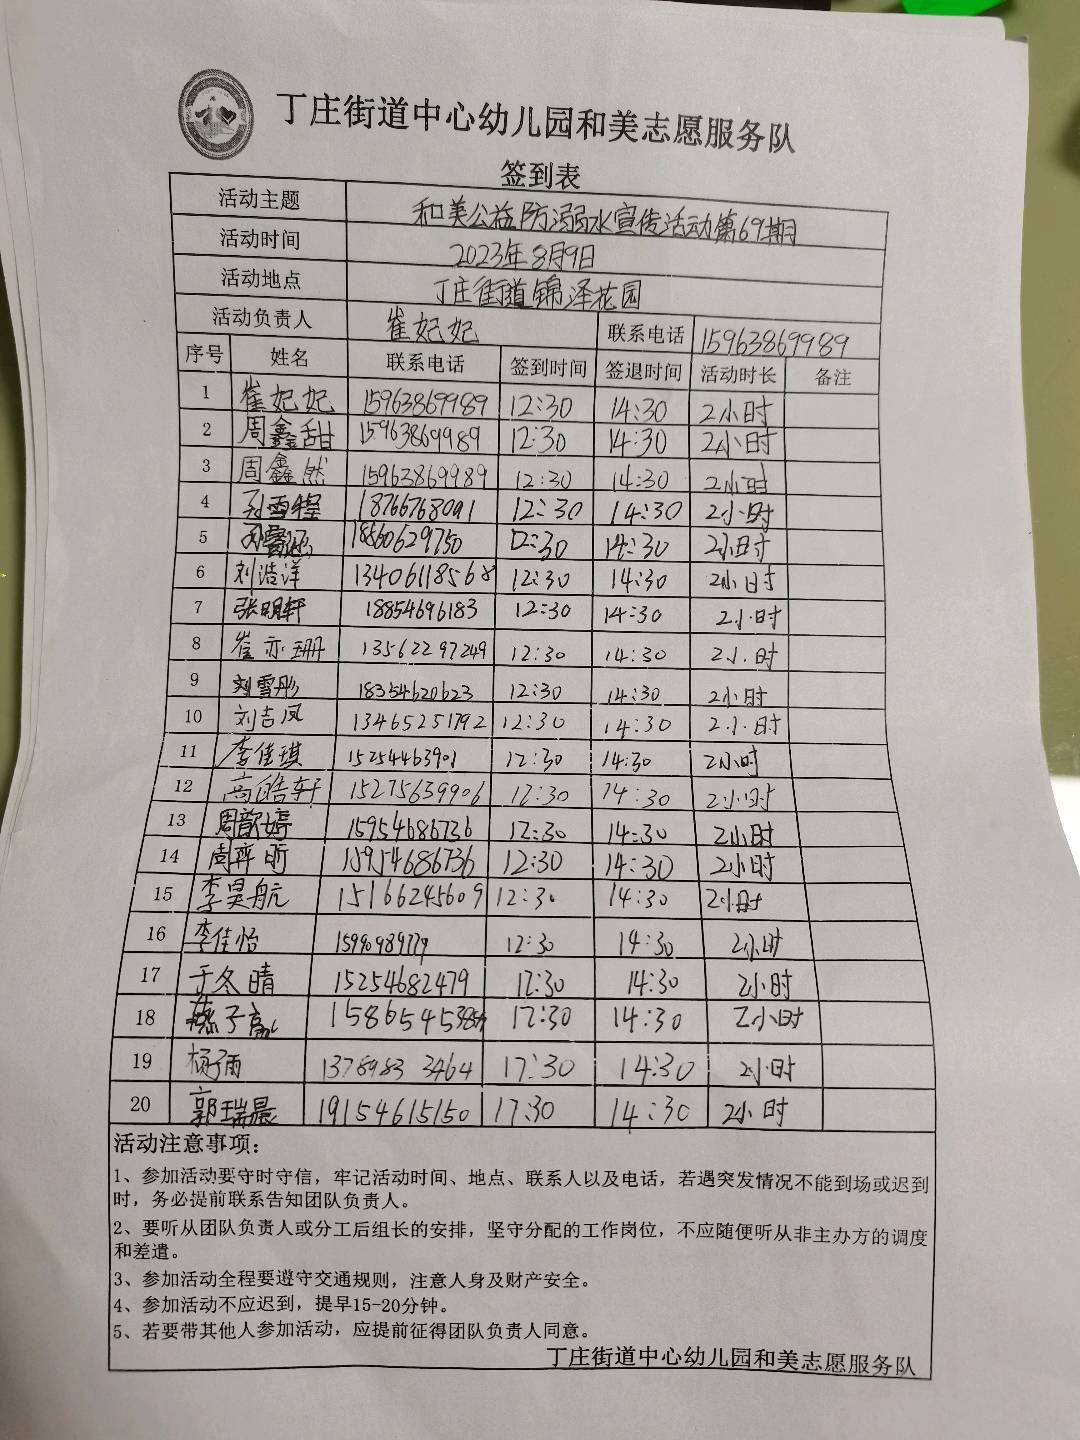 丁庄街道中心幼儿园和美志愿服务队
签到表
活动主题 和美公益防溺水宣传活动第69期
活动时间 2023年8月9日
活动地点 丁庄街道锦泽花园
活动负责人 崔妃妃 联系电话 15963869989
序号 姓名 联系电话 签到时间 签退时间 活动时长 备注
1 崔妃妃 15963869989 12:30 14:30 2小时
2 周鑫甜 15963869989 12:30 14:30 2小时
3 周鑫然 15963869989 12:30 14:30 2小时
4 孙雪程 18766768091 12:30 14:30 2小时
5 18560629750 12:30 14:30 2小时
6 刘浩洋 13406118568 12:30 14:30 2小时
7 张明轩 18854696183 12:30 14:30 2小时
8 崔亦珊 13562297249 12:30 14:30 2小时
9 刘雪彤 18354620623 12:30 14:30 2小时
10 刘吉凤 13465251792 12:30 14:30 2小时
11 李佳琪 15254463901 12:30 14:30 2小时
12 高皓轩 15275639906 12:30 14:30 2小时
13 周歆婷 15954686736 12:30 14:30 2小时
14 周弈昕 15954686736 12:30 14:30 2小时
15 李昊航 15166245609 12:30 14:30 2小时
16 李佳怡 12:30 14:30 2小时
17 于冬晴 15254682479 12:30 14:30 2小时
18 12:30 14:30 2小时
19 杨子雨 13789833464 12:30 14:30 2小时
20 郭瑞晨 19154615150 12:30 14:30 2小时
活动注意事项：
1、参加活动要守时守信，牢记活动时间、地点、联系人以及电话，若遇突发情况不能到场或迟到
时，务必提前联系告知团队负责人。
2、要听从团队负责人或分工后组长的安排，坚守分配的工作岗位，不应随便听从非主办方的调度
和差遣。
3、参加活动全程要遵守交通规则，注意人身及财产安全。
4、参加活动不应迟到，提早15-20分钟。
5、若要带其他人参加活动，应提前征得团队负责人同意。
丁庄街道中心幼儿园和美志愿服务队